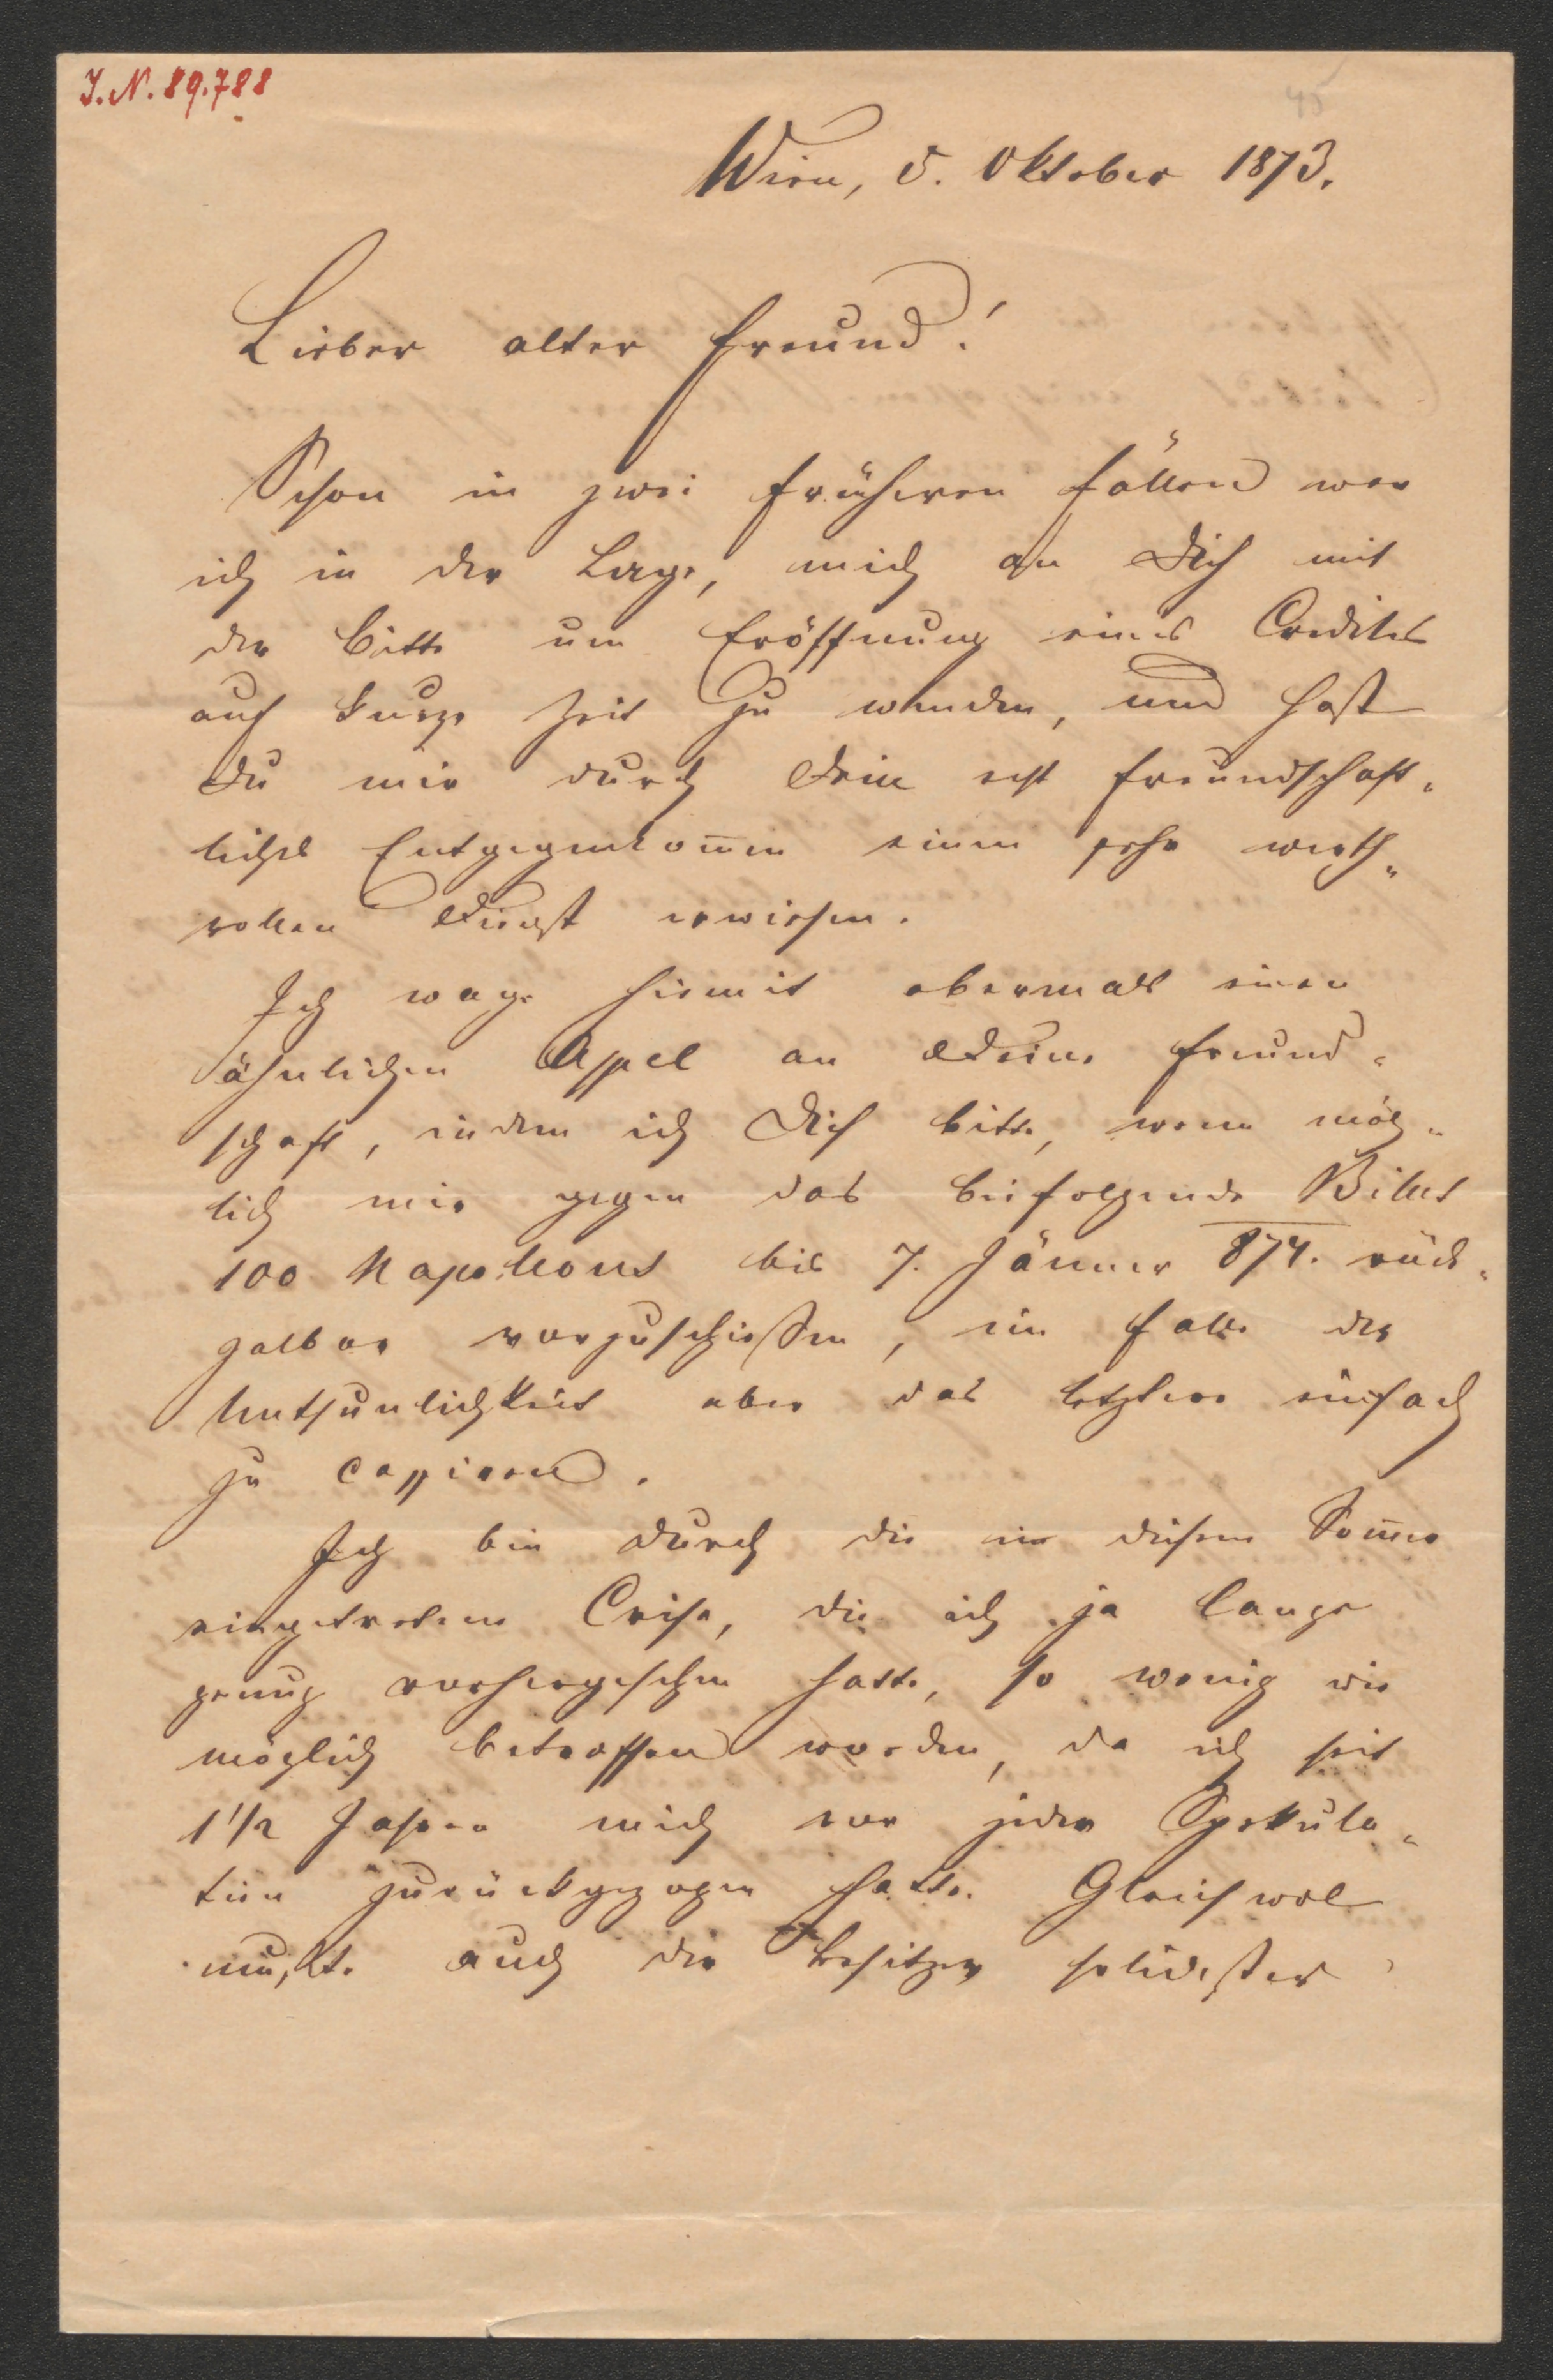 I. N. 89.788
45
Wien, 5. Oktober 1873.
Lieber alter Freund!
Schon in zwei früheren Fällen war
ich in der Lage, mich an Dich mit
der Bitte um Eröffnung eines Credites
auf kurze Zeit zu wenden, und hast
Du mir durch Dein echt freundschaft-
liches Entgegenkom̅en einen sehr werth-
vollen Dienst erwiesen.
Ich wage hiemit abermals einen
ähnlichen Appel an Deine Freund-
schaft, indem ich Dich bitte, wenn mög-
lich mir gegen das beifolgende Billet
100 Napoleons bis 7. Jänner 874. rück-
zalbar vorzuschießen, im Falle der
Unthunlichkeit aber das letztere einfach
zu cassieren.
Ich bin durch die in diesem Som̅er
eingetretene Crise, die ich ja lange
genug vorhergesehen hatte, so wenig wie
möglich betroffen worden, da ich seit
1 1/2 Jahren mich vor jeder Spekula-
tion zurückgezogen hatte. Gleichwol
mußte auch der Besitzer solidester